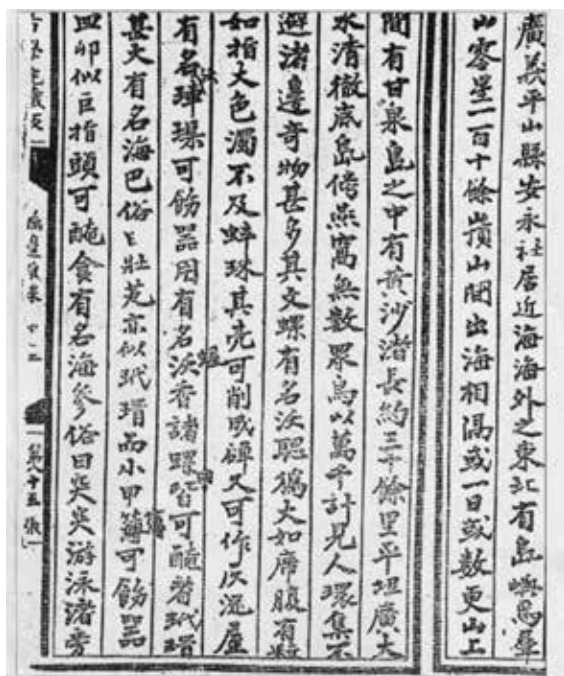 廣義平山縣安永社居近海海外之東北有島嶼焉群
山零星一百十餘嶺山間出海相隔或一日或數更山上
間有甘泉島之中有黃沙渚長約三十餘里平坦廣大
水清徹底島傍燕窩無數眾鳥以萬千計見人環集不
避渚邊奇物甚多其文螺有名沃聰獦大如席腹有粒
如指大色濁不及蚌珠其壳可削成碑又可作灰泥屋
有名琿璖可飭器用有名沃香諸螺皆可醃煮玳瑁
甚大有名海巴俗曰壯芠亦似玳瑁而小甲薄可飭器
皿卵似巨指頭可醃食有名海參俗曰突突游泳渚旁
撫邊雜錄